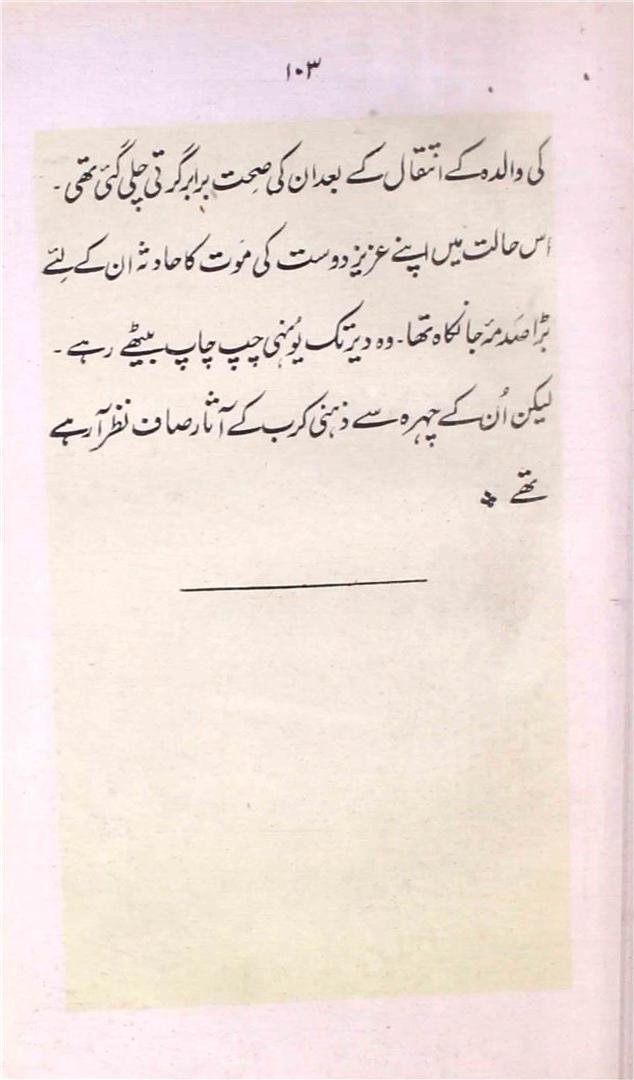 ۱۰۳
کی والدہ کے انتقال کے بعد ان کی صحت برابر گرتی چلی گئی تھی۔
اس حالت میں اپنے عزیز دوست کی مَوت کا حادثہ ان کے لِئے
بڑا صَدمۂ جانکاہ تھا۔ وہ دیر تک یُونہی چپ چاپ بیٹھے رہے۔
لیکن اُن کے چہرہ سے ذہنی کرب کے آثار صاف نظر آ رہے
تھے